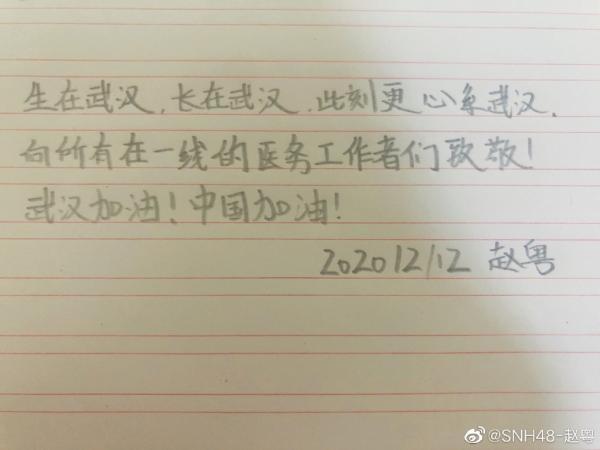 生在武汉,长在武汉,此刻更心系武汉,
向所有在一线的医务工作者们致敬!
武汉加油!中国加油!
2020/2/12 赵粤
@SNH48-赵粤